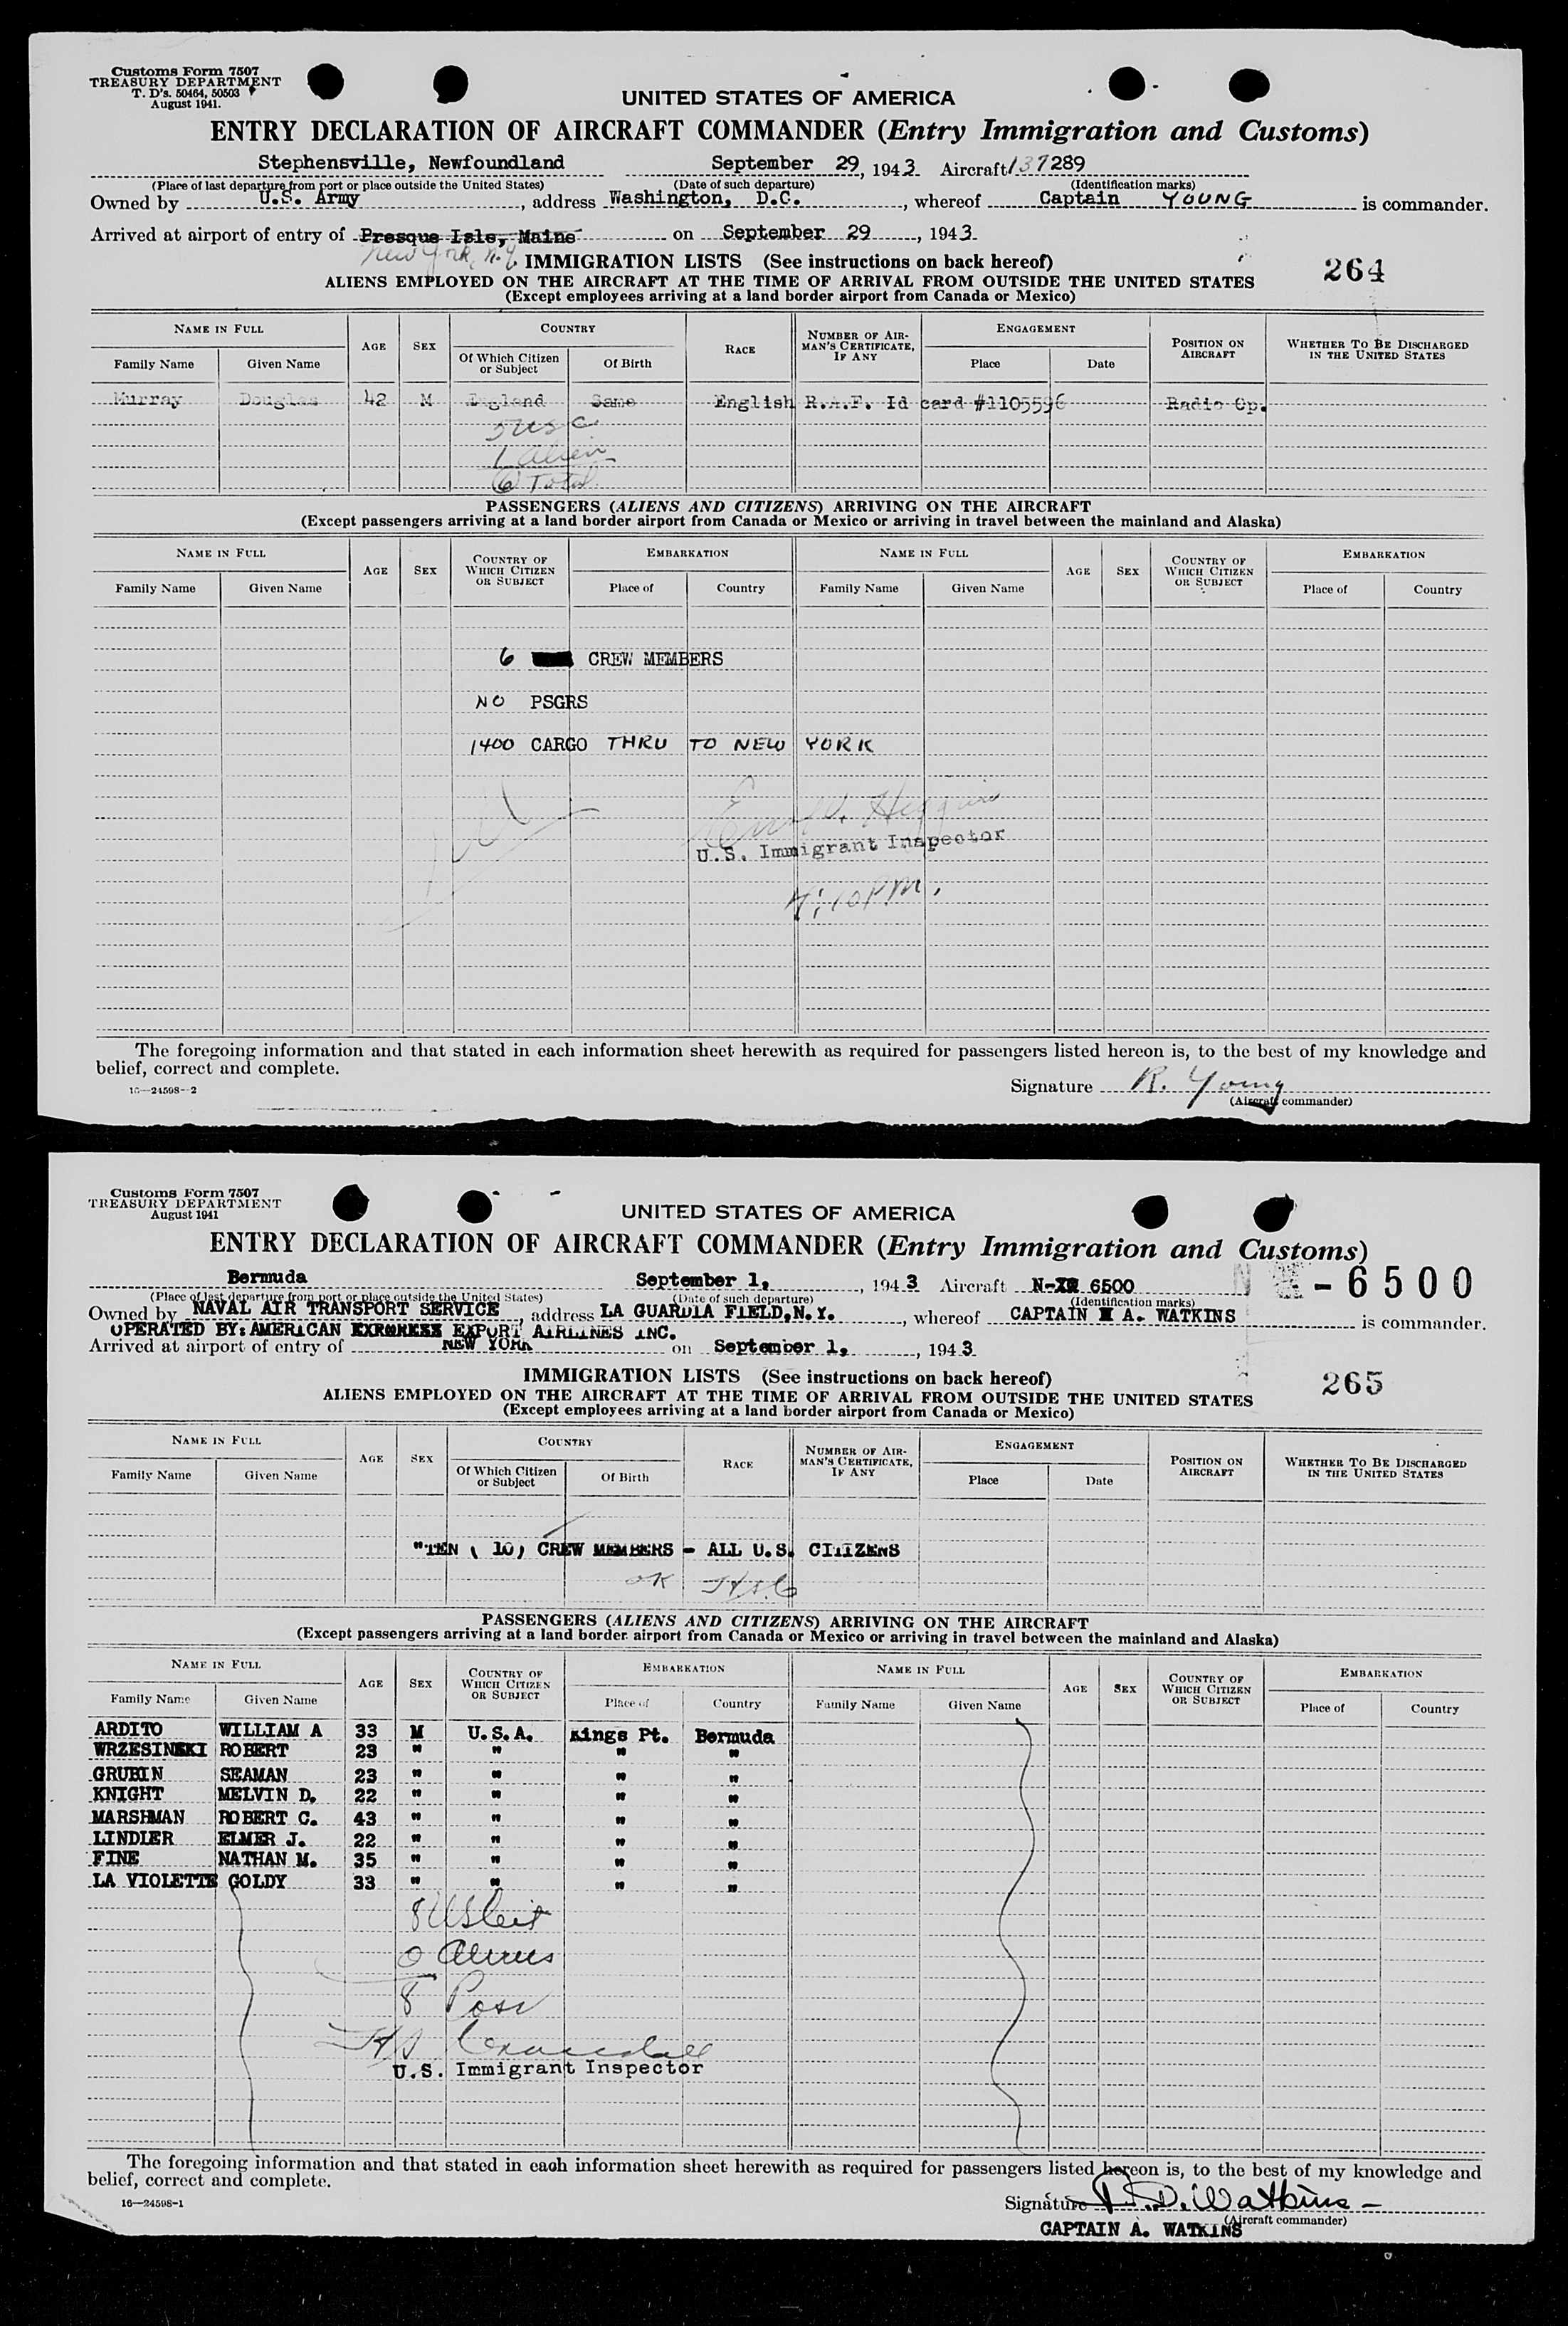 Customs Form 7507
TREASURY DEPARTMENT
T. D's. 50464, 50503
August 1941.
UNITED STATES OF AMERICA
ENTRY DECLARATION OF AIRCRAFT COMMANDER (Entry Immigration and Customs)
Stephensville, Newfoundland September 29, 1943 Aircraft 137289
(Place of last departure from port or place outside the United States) (Date of such departure) (Identification marks)
Owned by U.S. Army, address Washington, D.C., whereof Captain YOUNG is commander.
Arrived at airport of entry of Presque Isle, Maine on September 29, 1943
New York, N.Y.
IMMIGRATION LISTS (See instructions on back hereof)
264
ALIENS EMPLOYED ON THE AIRCRAFT AT THE TIME OF ARRIVAL FROM OUTSIDE THE UNITED STATES
(Except employees arriving at a land border airport from Canada or Mexico)
NAME IN FULL AGE SEX COUNTRY RACE NUMBER OF AIRMAN'S CERTIFICATE, IF ANY ENGAGEMENT POSITION ON AIRCRAFT WHETHER TO BE DISCHARGED IN THE UNITED STATES
Family Name Given Name Of Which Citizen or Subject Of Birth Place Date
Murray Douglas 42 M England Same English R.A.F. Id card #1105596 Radio Op.
5 USC
1 Alien
6 Total
PASSENGERS (ALIENS AND CITIZENS) ARRIVING ON THE AIRCRAFT
(Except passengers arriving at a land border airport from Canada or Mexico or arriving in travel between the mainland and Alaska)
NAME IN FULL AGE SEX COUNTRY OF WHICH CITIZEN OR SUBJECT EMBARKATION NAME IN FULL AGE SEX COUNTRY OF WHICH CITIZEN OR SUBJECT EMBARKATION
Family Name Given Name Place of Country Family Name Given Name Place of Country
6 CREW MEMBERS
NO PSGRS
1400 CARGO THRU TO NEW YORK
U.S. Immigrant Inspector
The foregoing information and that stated in each information sheet herewith as required for passengers listed hereon is, to the best of my knowledge and
belief, correct and complete.
16—24598-2
Signature R. Young
(Aircraft commander)
Customs Form 7507
TREASURY DEPARTMENT
August 1941
UNITED STATES OF AMERICA
ENTRY DECLARATION OF AIRCRAFT COMMANDER (Entry Immigration and Customs)
Bermuda September 1, 1943 Aircraft N-XR 6500 -6500
(Place of last departure from port or place outside the United States) (Date of such departure) (Identification marks)
Owned by NAVAL AIR TRANSPORT SERVICE, address LA GUARDIA FIELD, N.Y., whereof CAPTAIN A. WATKINS is commander.
OPERATED BY: AMERICAN EXPORT AIRLINES INC.
Arrived at airport of entry of NEW YORK on September 1, 1943
IMMIGRATION LISTS (See instructions on back hereof)
265
ALIENS EMPLOYED ON THE AIRCRAFT AT THE TIME OF ARRIVAL FROM OUTSIDE THE UNITED STATES
(Except employees arriving at a land border airport from Canada or Mexico)
NAME IN FULL AGE SEX COUNTRY RACE NUMBER OF AIRMAN'S CERTIFICATE, IF ANY ENGAGEMENT POSITION ON AIRCRAFT WHETHER TO BE DISCHARGED IN THE UNITED STATES
Family Name Given Name Of Which Citizen or Subject Of Birth Place Date
"TEN ( 10) CREW MEMBERS - ALL U.S. CITIZENS
OK
PASSENGERS (ALIENS AND CITIZENS) ARRIVING ON THE AIRCRAFT
(Except passengers arriving at a land border airport from Canada or Mexico or arriving in travel between the mainland and Alaska)
NAME IN FULL AGE SEX COUNTRY OF WHICH CITIZEN OR SUBJECT EMBARKATION NAME IN FULL AGE SEX COUNTRY OF WHICH CITIZEN OR SUBJECT EMBARKATION
Family Name Given Name Place of Country Family Name Given Name Place of Country
ARDITO WILLIAM A 33 M U.S.A. Kings Pt. Bermuda
WRZESINSKI ROBERT 23 " " " "
GRUBIN SEAMAN 23 " " " "
KNIGHT MELVIN D. 22 " " " "
MARSHMAN ROBERT C. 43 " " " "
LINDLER ELMER J. 22 " " " "
FINE NATHAN M. 35 " " " "
LA VIOLETTE GOLDY 33 " " " "
8 US Cit
0 Aliens
8 Pass
U.S. Immigrant Inspector
The foregoing information and that stated in each information sheet herewith as required for passengers listed hereon is, to the best of my knowledge and
belief, correct and complete.
16—24598-1
Signature Watkins
(Aircraft commander)
CAPTAIN A. WATKINS